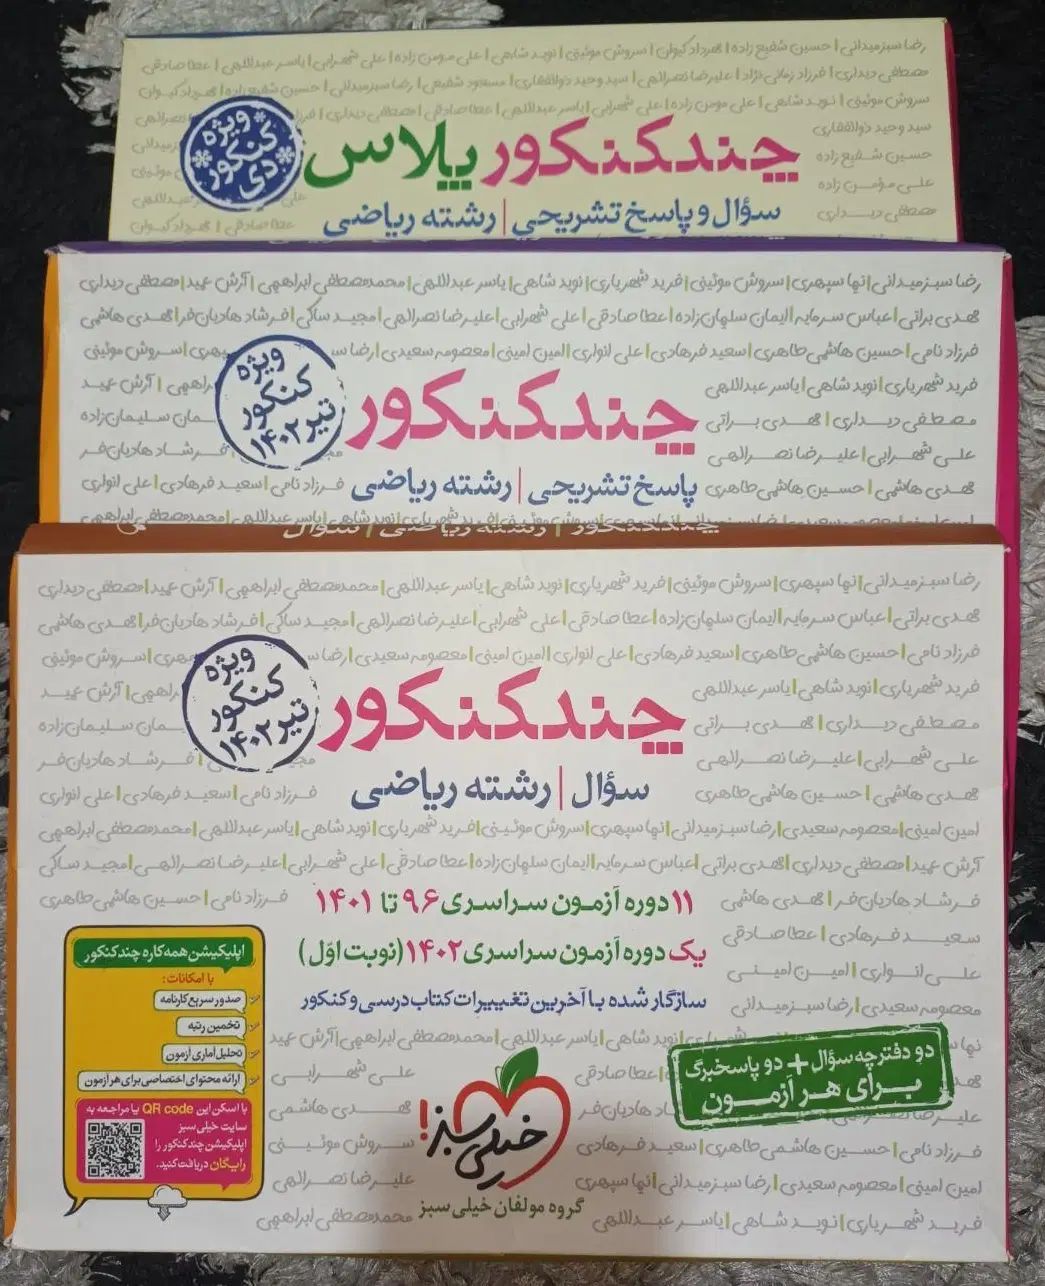 رضا سبزمیدانی | حسین شفیع زاده | مهرداد کیوان | سروش موئینی | نوید شاهی | علی مومن زاده | علی شهرابی | یاسر عبداللهی | عطا صادقی
مصطفی دیداری | فرزاد زمانی نژاد | علیرضا نصرالهی | سید وحید ذوالفقاری | مسعود شفیعی | رضا سبزمیدانی | حسین شفیع زاده | مهرداد کیوان
سروش موئینی | نوید شاهی | علی مومن زاده | علی شهرابی | یاسر عبداللهی | عطا صادقی | مصطفی دیداری
سید وحید ذوالفقاری
حسین شفیع زاده
علی مؤمن زاده
مصطفی دیداری
ویژه
کنکور
دی
چند کنکور پلاس
سؤال و پاسخ تشریحی | رشته ریاضی
عطا صادقی | مهرداد کیوان
رضا سبزمیدانی | تها سپهری | سروش موئینی | فرید شهریاری | نوید شاهی | یاسر عبداللهی | محمدمصطفی ابراهیمی | آرش عمید | مصطفی دیداری
مهدی براتی | عباس سرمایه | ایمان سلیمان‌زاده | عطا صادقی | علی شهرابی | علیرضا نصرالهی | مجید ساکی | فرشاد هادیان‌فر | مهدی هاشمی
فرزاد نامی | حسین هاشمی طاهری | سعید فرهادی | علی انواری | امین امینی | معصومه سعیدی | رضا سبزمیدانی
فرید شهریاری | نوید شاهی | یاسر عبداللهی
مصطفی دیداری | مهدی براتی
علی شهرابی | علیرضا نصرالهی
مهدی هاشمی | حسین هاشمی طاهری
ویژه
کنکور
تیر ۱۴۰۲
چند کنکور
پاسخ تشریحی | رشته ریاضی
فرزاد نامی | سعید فرهادی | علی انواری
چند کنکور | رشته ریاضی | سؤال
رضا سبزمیدانی | تها سپهری | سروش موئینی | فرید شهریاری | نوید شاهی | یاسر عبداللهی | محمدمصطفی ابراهیمی | آرش عمید | مصطفی دیداری
مهدی براتی | عباس سرمایه | ایمان سلیمان‌زاده | عطا صادقی | علی شهرابی | علیرضا نصرالهی | مجید ساکی | فرشاد هادیان‌فر | مهدی هاشمی
فرزاد نامی | حسین هاشمی طاهری | سعید فرهادی | علی انواری | امین امینی | معصومه سعیدی | رضا
فرید شهریاری | نوید شاهی | یاسر عبداللهی
مصطفی دیداری | مهدی براتی
علی شهرابی | علیرضا نصرالهی
مهدی هاشمی | حسین هاشمی طاهری
ویژه
کنکور
تیر ۱۴۰۲
چند کنکور
سؤال | رشته ریاضی
فرزاد نامی | سعید فرهادی | علی انواری
امین امینی | معصومه سعیدی | رضا سبزمیدانی | تها سپهری | سروش موئینی | فرید شهریاری | نوید شاهی | یاسر عبداللهی | محمدمصطفی ابراهیمی
آرش عمید | مصطفی دیداری | مهدی براتی | عباس سرمایه | ایمان سلیمان‌زاده | عطا صادقی | علی شهرابی | علیرضا نصرالهی | مجید ساکی
فرشاد هادیان‌فر | مهدی هاشمی
فرزاد نامی | حسین هاشمی طاهری
سعید فرهادی | عطا صادقی
علی انواری | امین امینی
معصومه سعیدی | رضا سبزمیدانی
۱۱ دوره آزمون سراسری ۹۶ تا ۱۴۰۱
یک دوره آزمون سراسری ۱۴۰۲ (نوبت اوّل)
سازگار شده با آخرین تغییرات کتاب درسی و کنکور
نوید شاهی | یاسر عبداللهی | محمدمصطفی ابراهیمی | آرش عمید
دو دفترچه سؤال + دو پاسخبرگ
برای هر آزمون
اپلیکیشن همه‌کاره چند کنکور
با امکانات:
صدور سریع کارنامه
تخمین رتبه
تحلیل آماری آزمون
ارائه محتوای اختصاصی برای هر آزمون
با اسکن این QR code یا مراجعه به
سایت خیلی سبز
اپلیکیشن چند کنکور را
رایگان دریافت کنید.
علی شهرابی
مهدی هاشمی
سروش موئینی
علیرضا نصرالهی
محمدمصطفی ابراهیمی
خیلی سبز!
گروه مولفان خیلی سبز
عطا صادقی
فرزاد نامی | حسین هاشمی طاهری | سعید فرهادی
امین امینی | معصومه سعیدی | رضا سبزمیدانی | تها سپهری
فرید شهریاری | نوید شاهی | یاسر عبداللهی